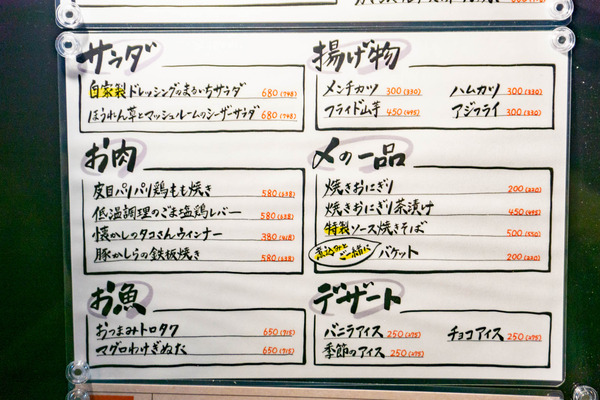 サラダ
自家製ドレッシングのまかちサラダ 680(748)
ほうれん草とマッシュルームのシーザーサラダ 680(748)
お肉
皮目パリパリ鶏もも焼き 580(638)
低温調理のごま塩鶏レバー 580(638)
懐かしのタコさんウィンナー 380(418)
豚かしらの鉄板焼き 580(638)
お魚
おつまみトロタク 650(715)
マグロわけぎぬた 650(715)
揚げ物
メンチカツ 300(330) ハムカツ 300(330)
フライド山芋 450(495) アジフライ 300(330)
〆の一品
焼きおにぎり 200(220)
焼きおにぎり茶漬け 450(495)
特製ソース焼きそば 500(550)
煮込みとご一緒に バケット 200(220)
デザート
バニラアイス 250(275) チョコアイス 250(275)
季節のアイス 250(275)